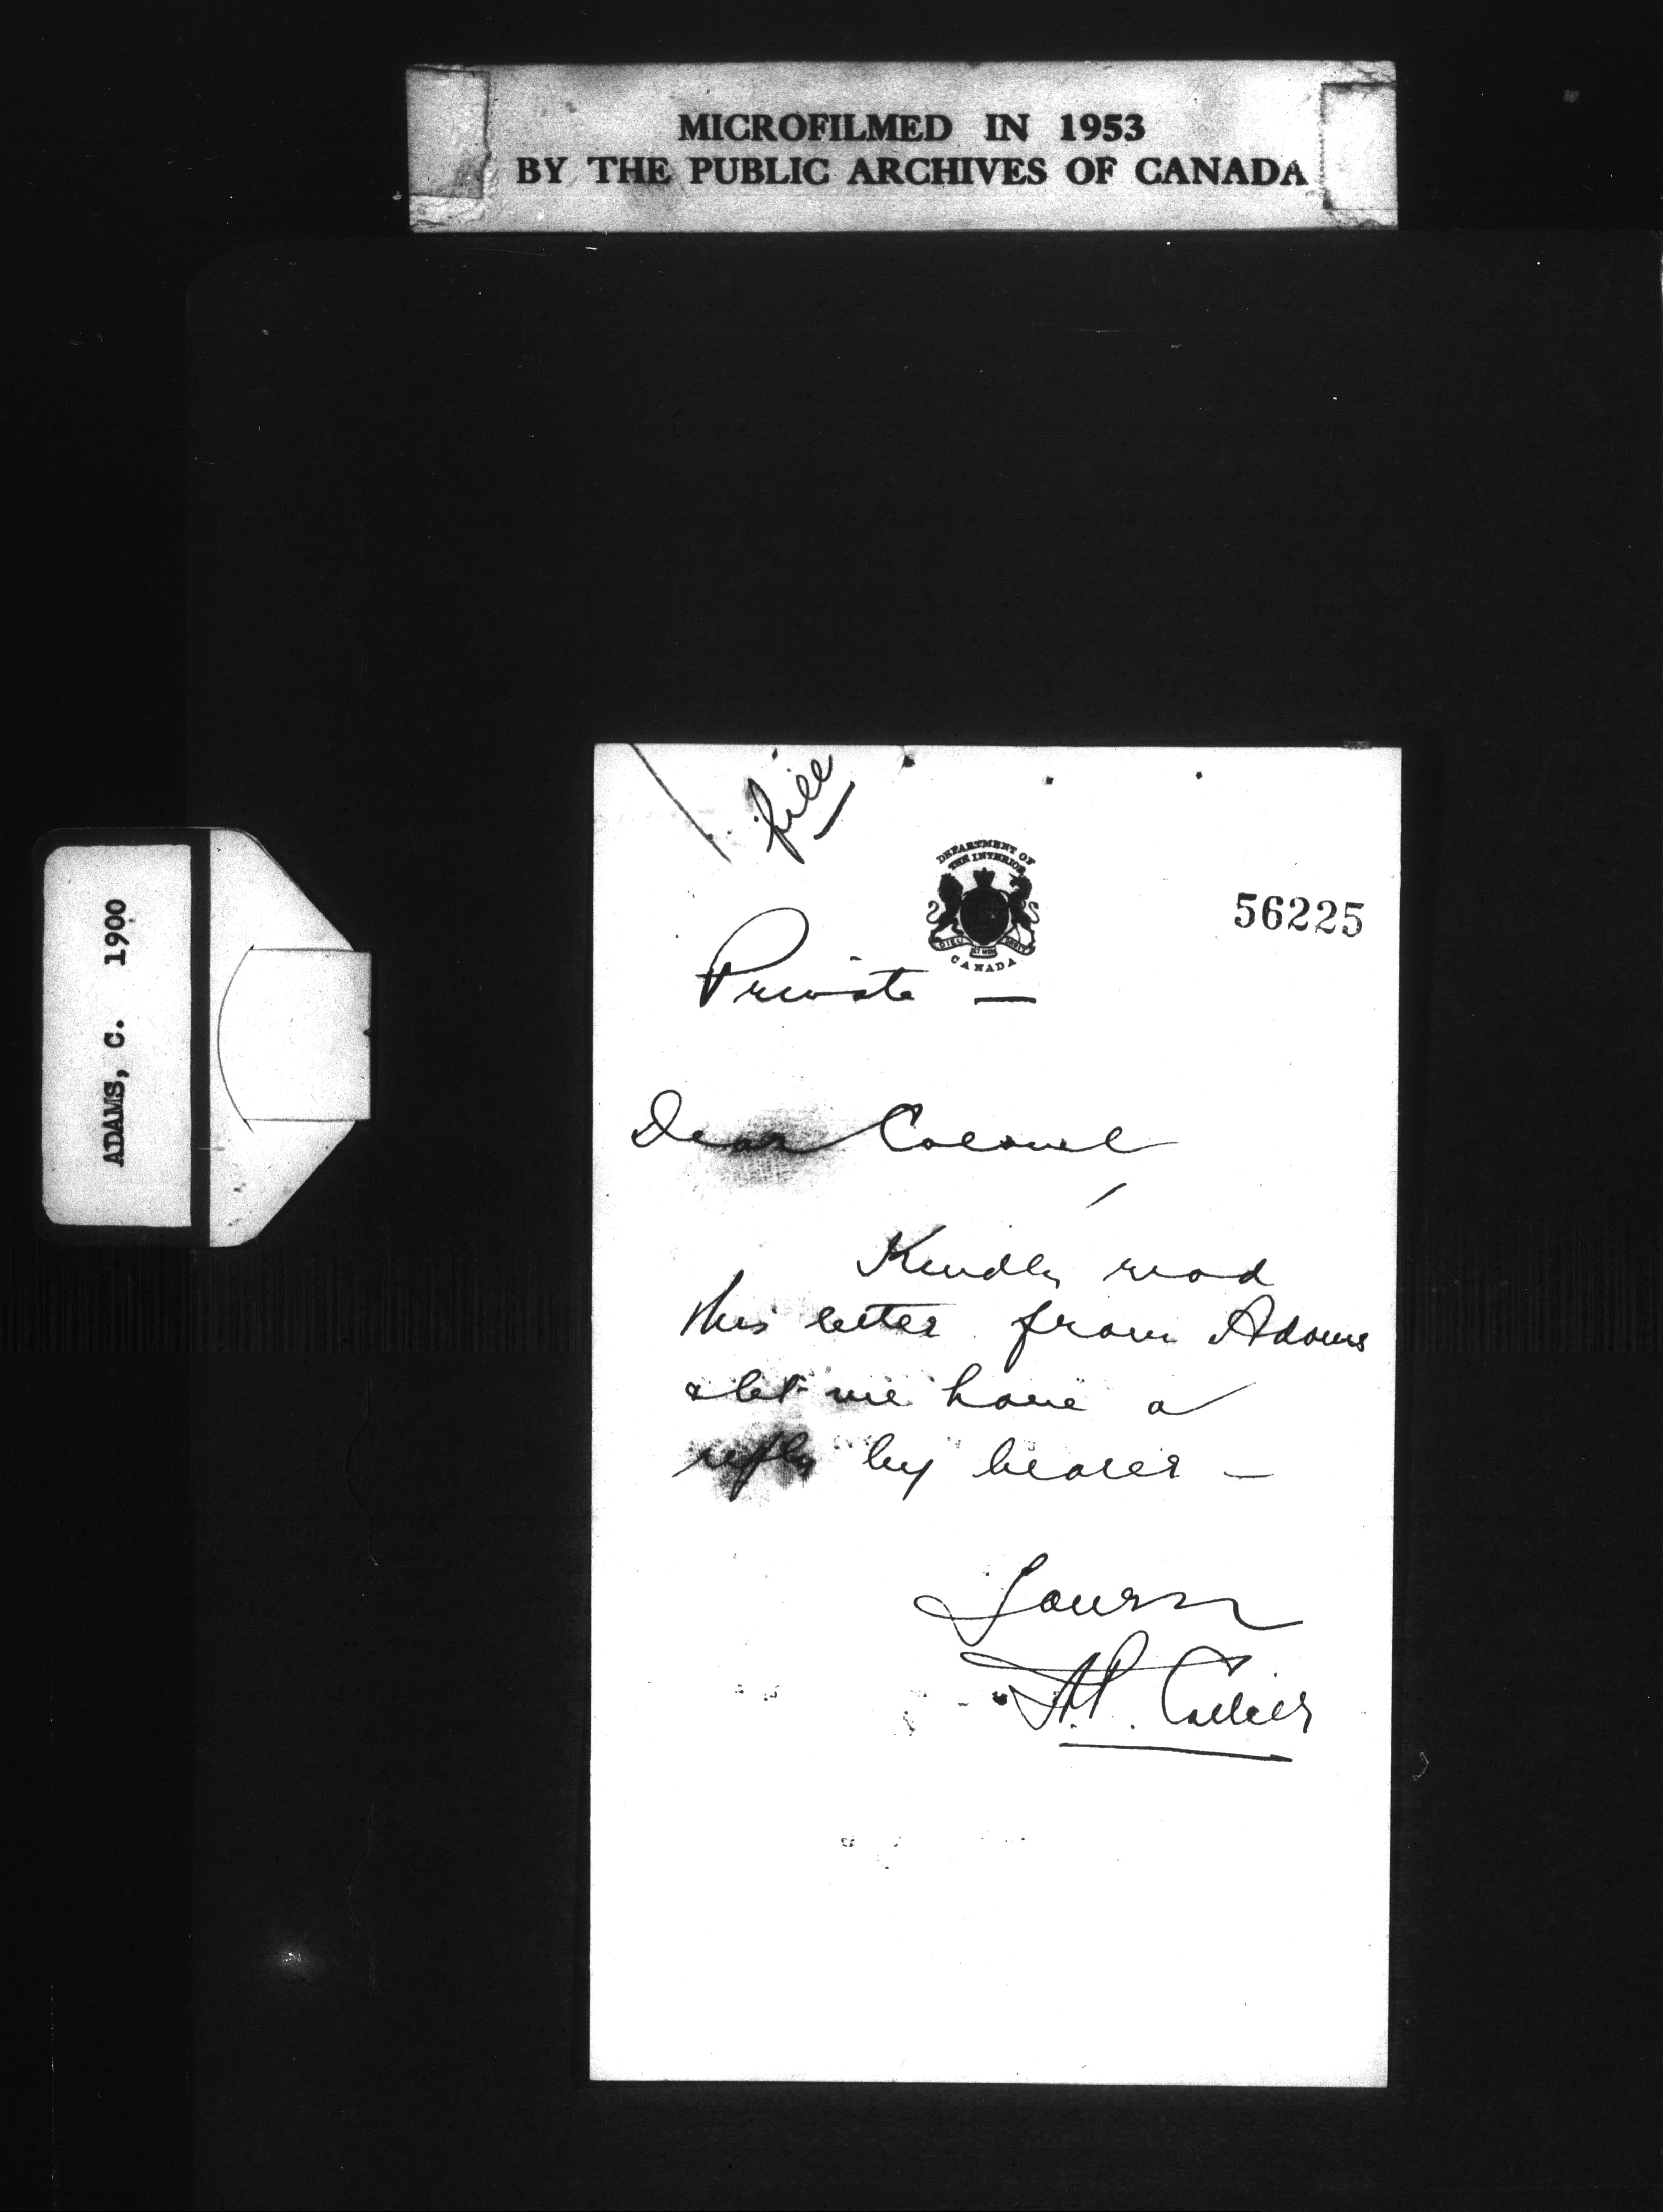 MICROFILMED IN 1953
BY THE PUBLIC ARCHIVES OF CANADA
ADAMS, C. 1900
file
DEPARTMENT OF
THE INTERIOR
DIEU ET MON DROIT
CANADA
56225
Private —
Dear Colonel,
Kindly read
this letter from Adams
& let me have a
reply by bearer —
Yours
A.P. Collier